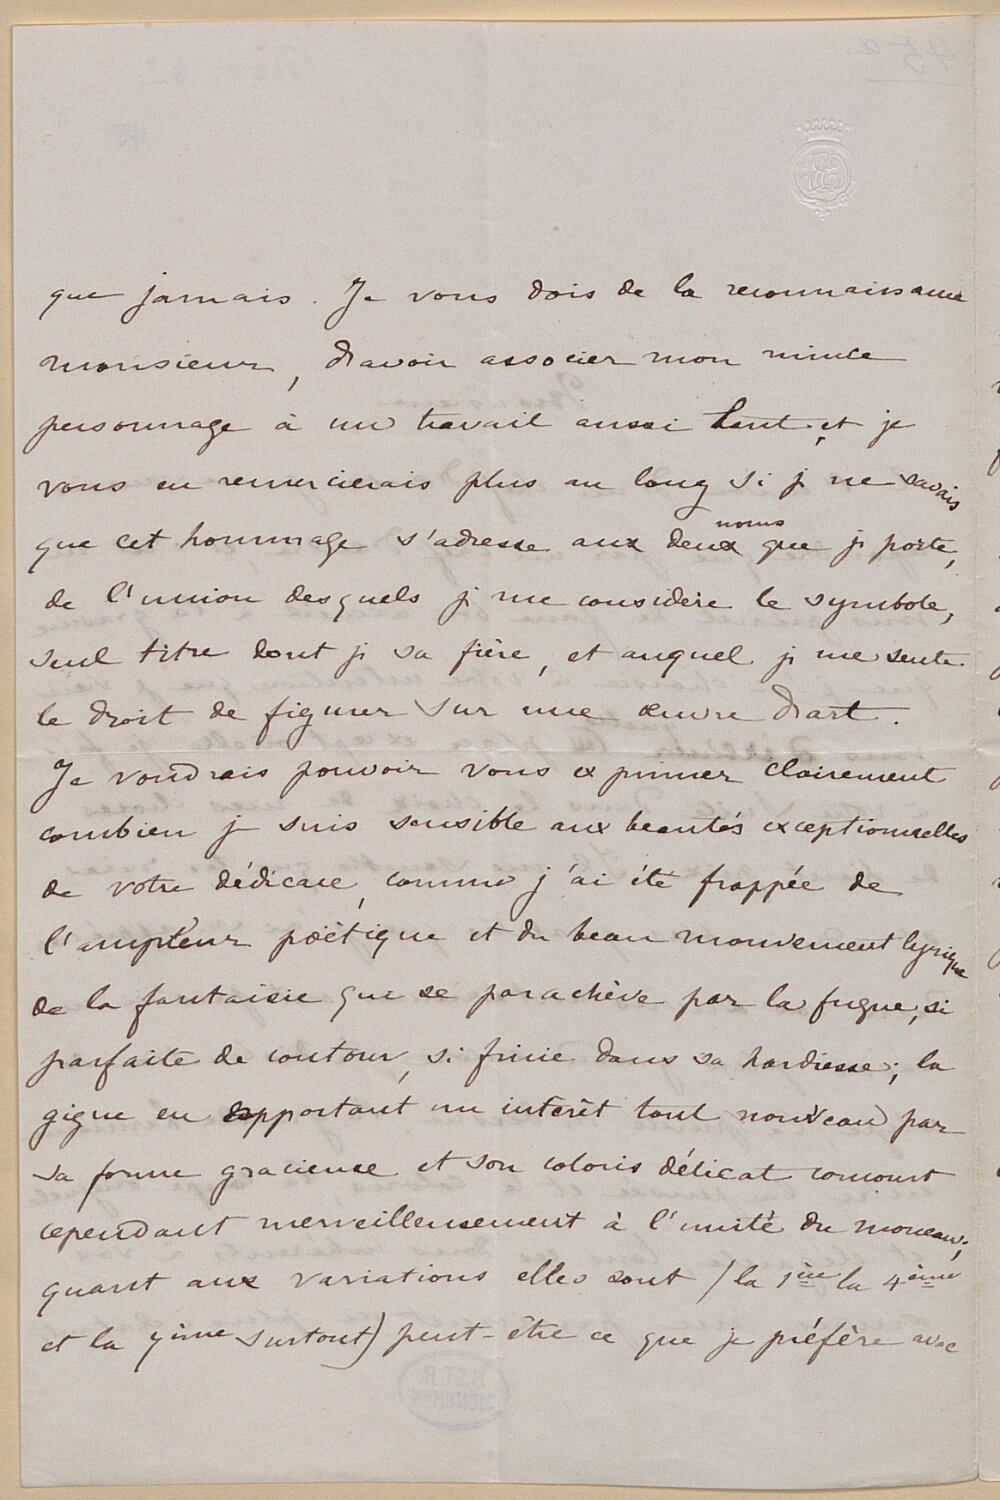 que jamais. Je vous dois de la reconnaissance
monsieur, d'avoir associer mon mince
personnage à un travail aussi haut, et je
vous en remercierais plus au long si je ne savais
que cet hommage s'adresse aux deux noms que je porte,
de l'union desquels je me considère le symbole,
seul titre dont je sa fière, et auquel je me sente
le droit de figurer sur une œuvre d'art.
Je voudrais pouvoir vous exprimer clairement
combien je suis sensible aux beautés exceptionnelles
de votre dédicace, comme j'ai été frappée de
l'ampleur poëtique et du beau mouvement lyrique
de la fantaisie que se parachève par la fugue, si
parfaite de contour, si finie dans sa hardiesse; la
gigue en apportant un intérêt tout nouveau par
sa forme gracieuse et son coloris délicat concourt
cependant merveilleusement à l'unité du morceau;
quant aux variations elles sont (la 1ère la 4ème
et la 7ème surtout) peut-être ce que je préfère avec